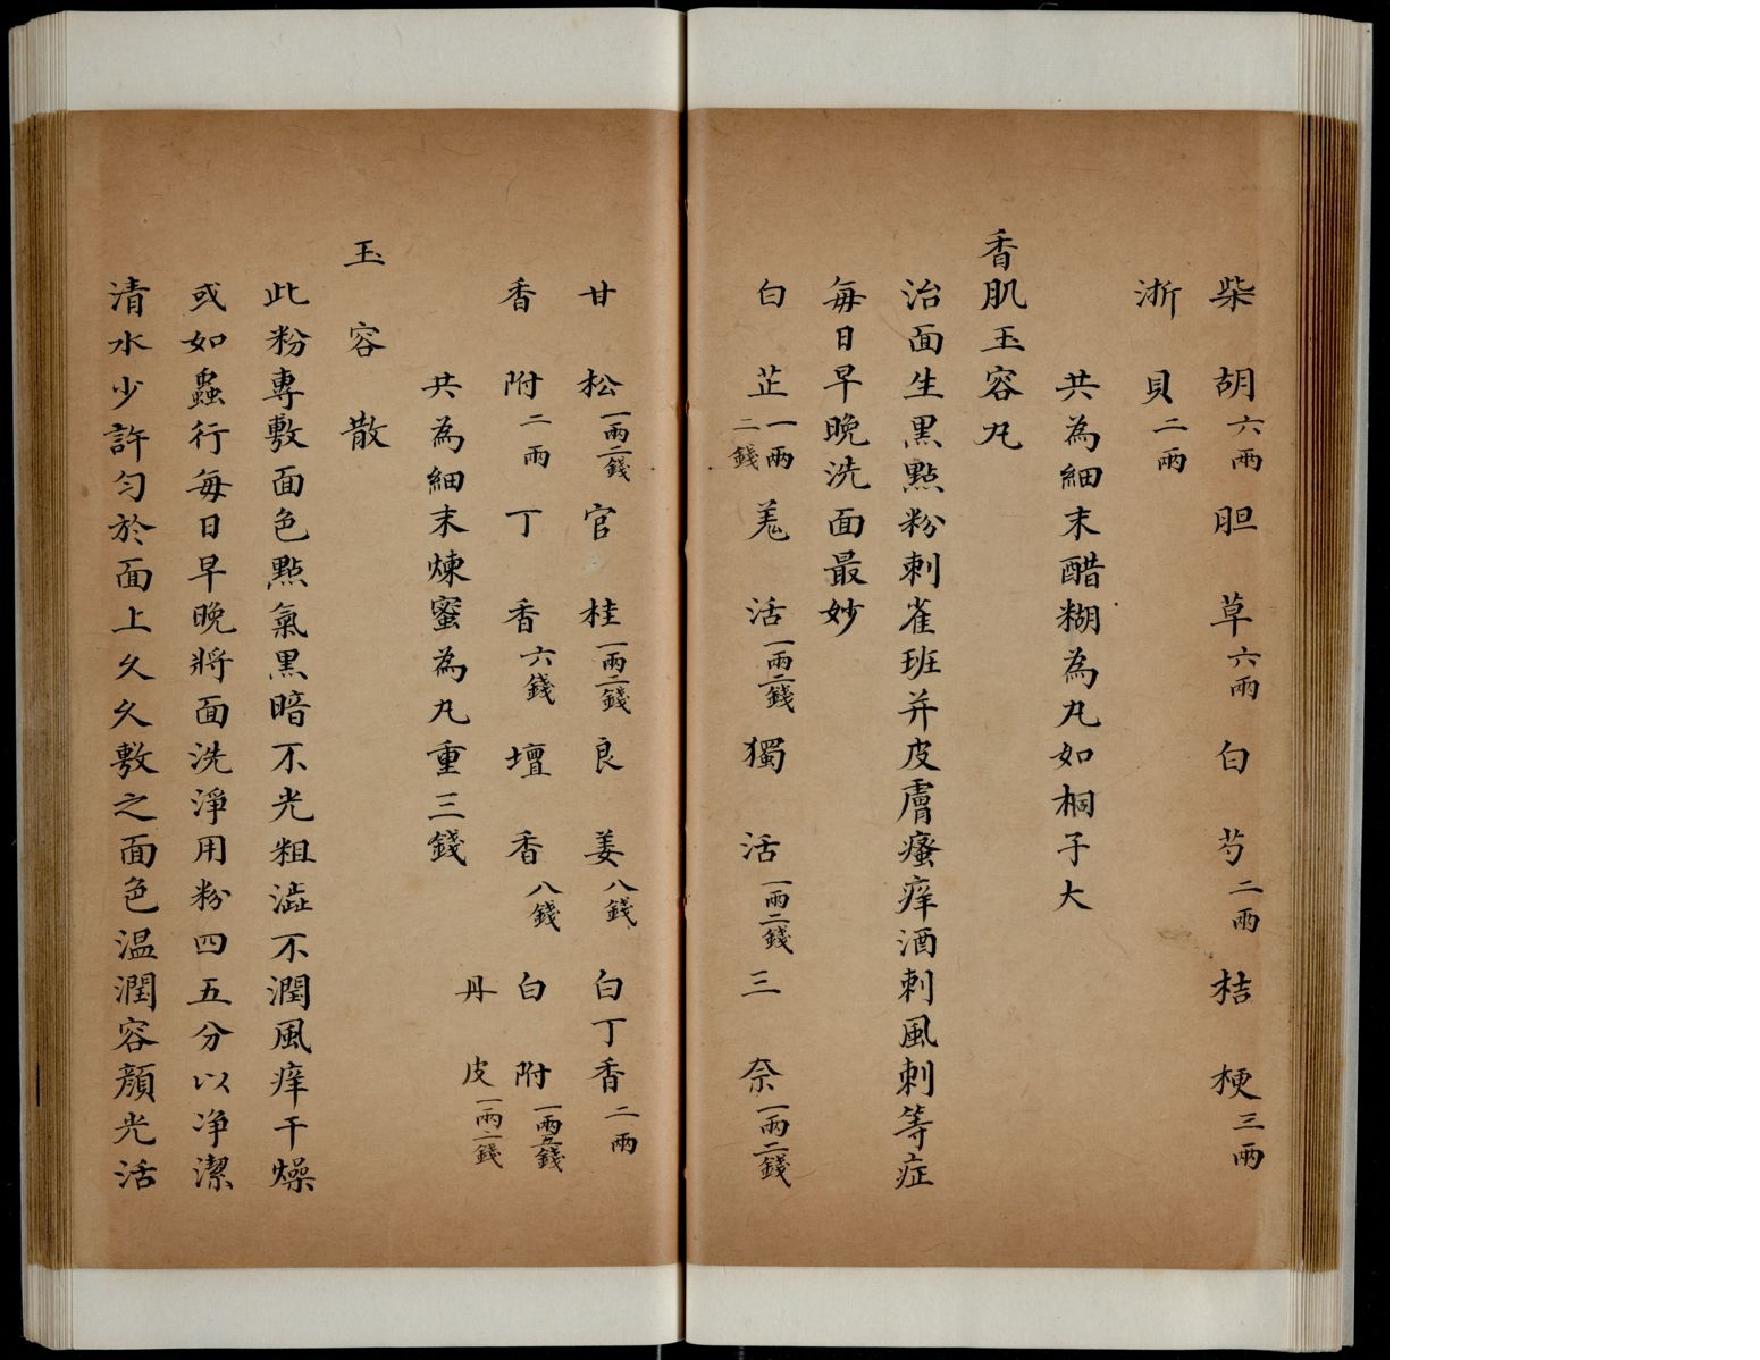 柴胡六兩胆草六兩白芍二兩桔梗三兩
浙貝二兩
共為細末醋糊為丸如桐子大
香肌玉容丸
治面生黑點粉刺雀班并皮膚瘙痒酒刺風刺等症
每日早晚洗面最妙
白芷一兩二錢羗活一兩二錢獨活一兩二錢三奈一兩二錢
甘松一兩二錢官桂一兩二錢良姜八錢白丁香二兩
香附二兩丁香六錢壇香八錢白附一兩五錢
丹皮一兩二錢
共為細末煉蜜為丸重三錢
玉容散
此粉專敷面色點氣黑暗不光粗澁不潤風痒干燥
或如蟲行每日早晚將面洗淨用粉四五分以净潔
清水少許匀於面上久久敷之面色温潤容顏光活